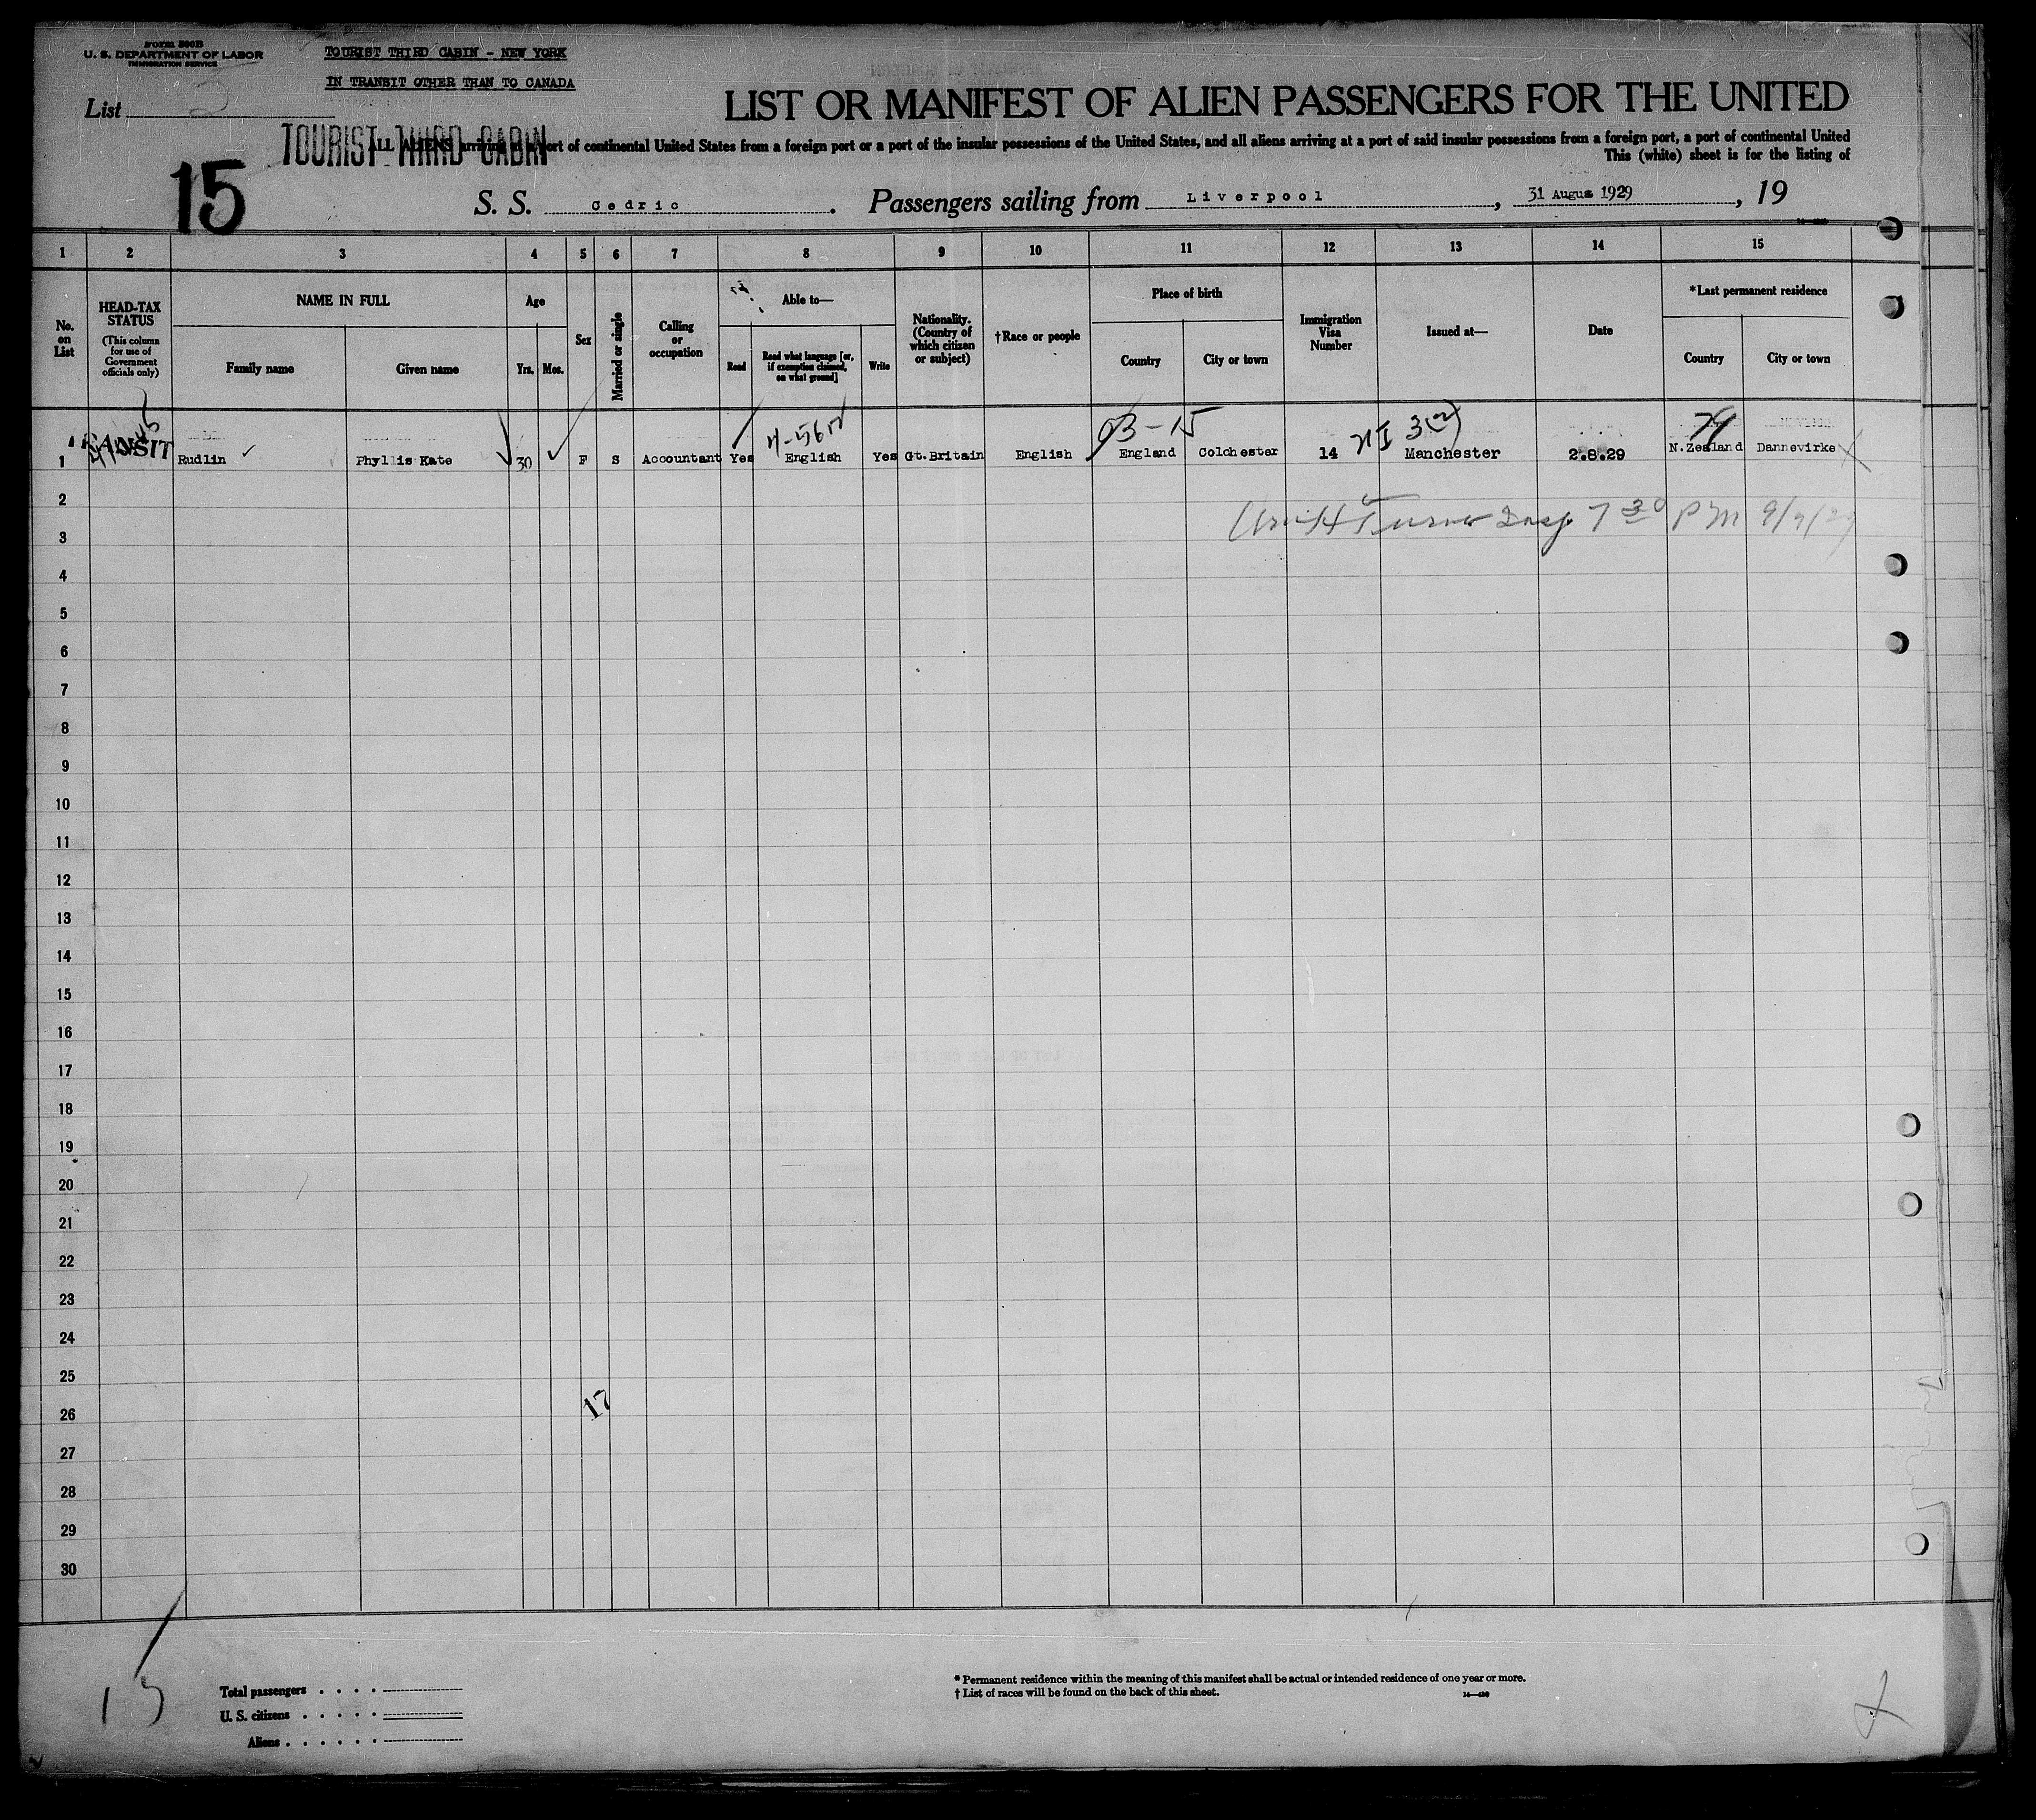 Form 500B
U. S. DEPARTMENT OF LABOR
IMMIGRATION SERVICE
TOURIST THIRD CABIN - NEW YORK
IN TRANSIT OTHER THAN TO CANADA
List 2
LIST OR MANIFEST OF ALIEN PASSENGERS FOR THE UNITED
TOURIST THIRD CABIN
ALL ALIENS arriving at a port of continental United States from a foreign port or a port of the insular possessions of the United States, and all aliens arriving at a port of said insular possessions from a foreign port, a port of continental United
This (white) sheet is for the listing of
15
S. S. Cedric. Passengers sailing from Liverpool, 31 Augus 1929, 19
1 2 3 4 5 6 7 8 9 10 11 12 13 14 15
No. on List
HEAD-TAX STATUS
(This column for use of Government officials only)
NAME IN FULL
Family name
Given name
Age
Yrs. Mos.
Sex
Married or single
Calling or occupation
Able to—
Read
Read what language [or, if exemption claimed, on what ground]
Write
Nationality. (Country of which citizen or subject)
†Race or people
Place of birth
Country
City or town
Immigration Visa Number
Issued at—
Date
*Last permanent residence
Country
City or town
03-15 3(2)
1 TRANSIT Rudlin Phyllis Kate 30 F S Accountant Yes English Yes Gt.Britain English England Colchester 14 Manchester 2.8.29 N.Zealand Dannevirke
Turner Insp 7 30 PM 9/9/29
2
3
4
5
6
7
8
9
10
11
12
13
14
15
16
17
18
19
20
21
22
23
24
25
17
26
27
28
29
30
Total passengers . . . .
U. S. citizens . . . . .
Aliens . . . . . .
* Permanent residence within the meaning of this manifest shall be actual or intended residence of one year or more.
† List of races will be found on the back of this sheet.